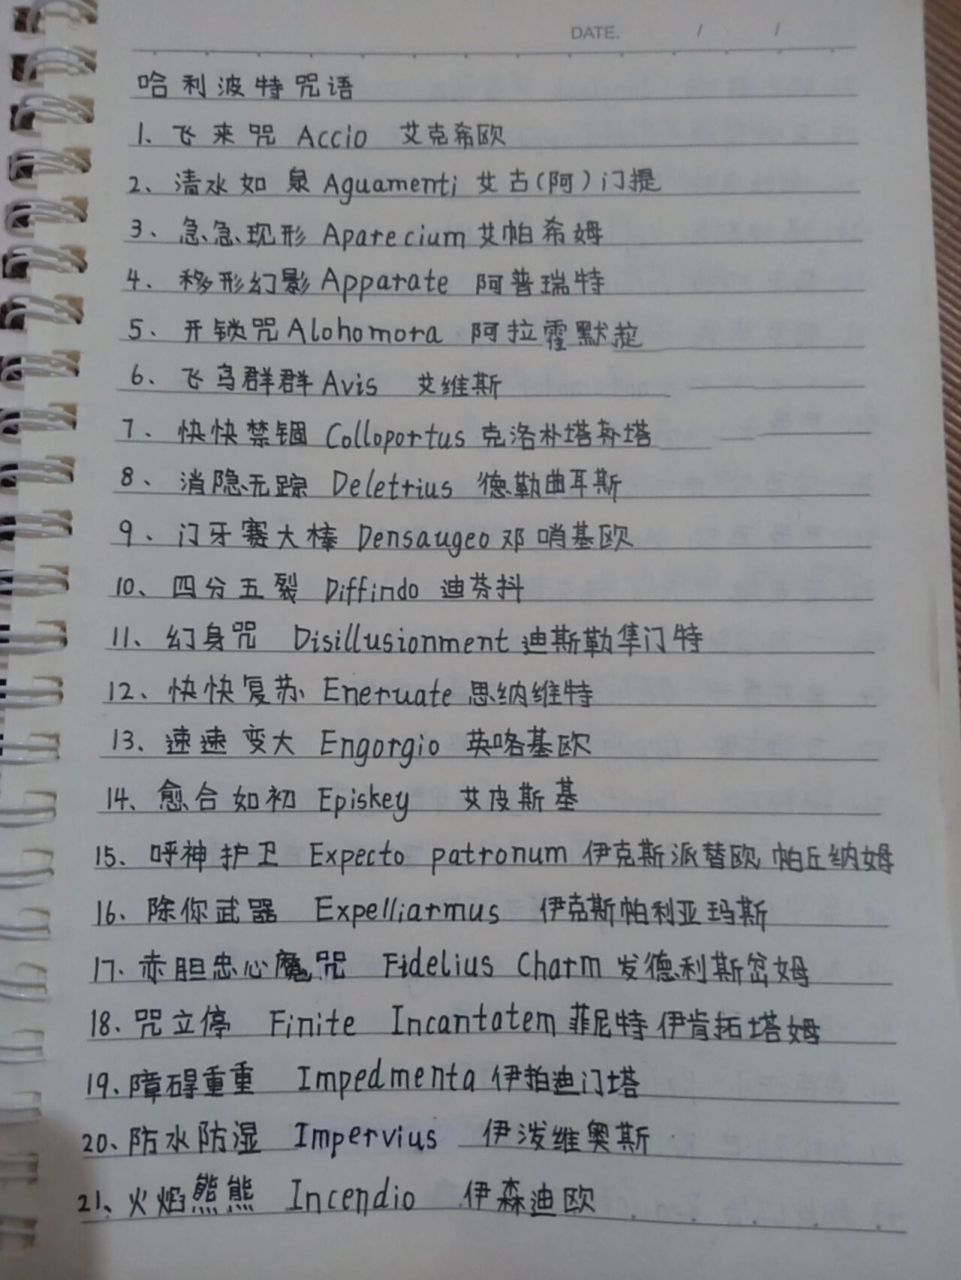 DATE. / /
哈利波特咒语
1、飞来咒 Accio 艾克希欧
2、清水如泉 Aguamenti 艾古(阿)门提
3、急急现形 Aparecium 艾帕希姆
4、移形幻影 Apparate 阿普瑞特
5、开锁咒 Alohomora 阿拉霍默拉
6、飞鸟群群 Avis 艾维斯
7、快快禁锢 Colloportus 克洛朴塔
8、消隐无踪 Deletrius 德勒曲耳斯
9、门牙赛大棒 Densaugeo 邓哨基欧
10、四分五裂 Diffindo 迪芬抖
11、幻身咒 Disillusionment 迪斯勒隼门特
12、快快复苏 Eneruate 思纳维特
13、速速变大 Engorgio 英咯基欧
14、愈合如初 Episkey 艾皮斯基
15、呼神护卫 Expecto patronum 伊克斯派替欧 帕丘纳姆
16、除你武器 Expelliarmus 伊克斯帕利亚玛斯
17、赤胆忠心魔咒 Fidelius Charm 发德利斯岔姆
18、咒立停 Finite Incantatem 菲尼特 伊肯拓塔姆
19、障碍重重 Impedmenta 伊拍迪门塔
20、防水防湿 Impervius 伊泼维奥斯
21、火焰熊熊 Incendio 伊森迪欧